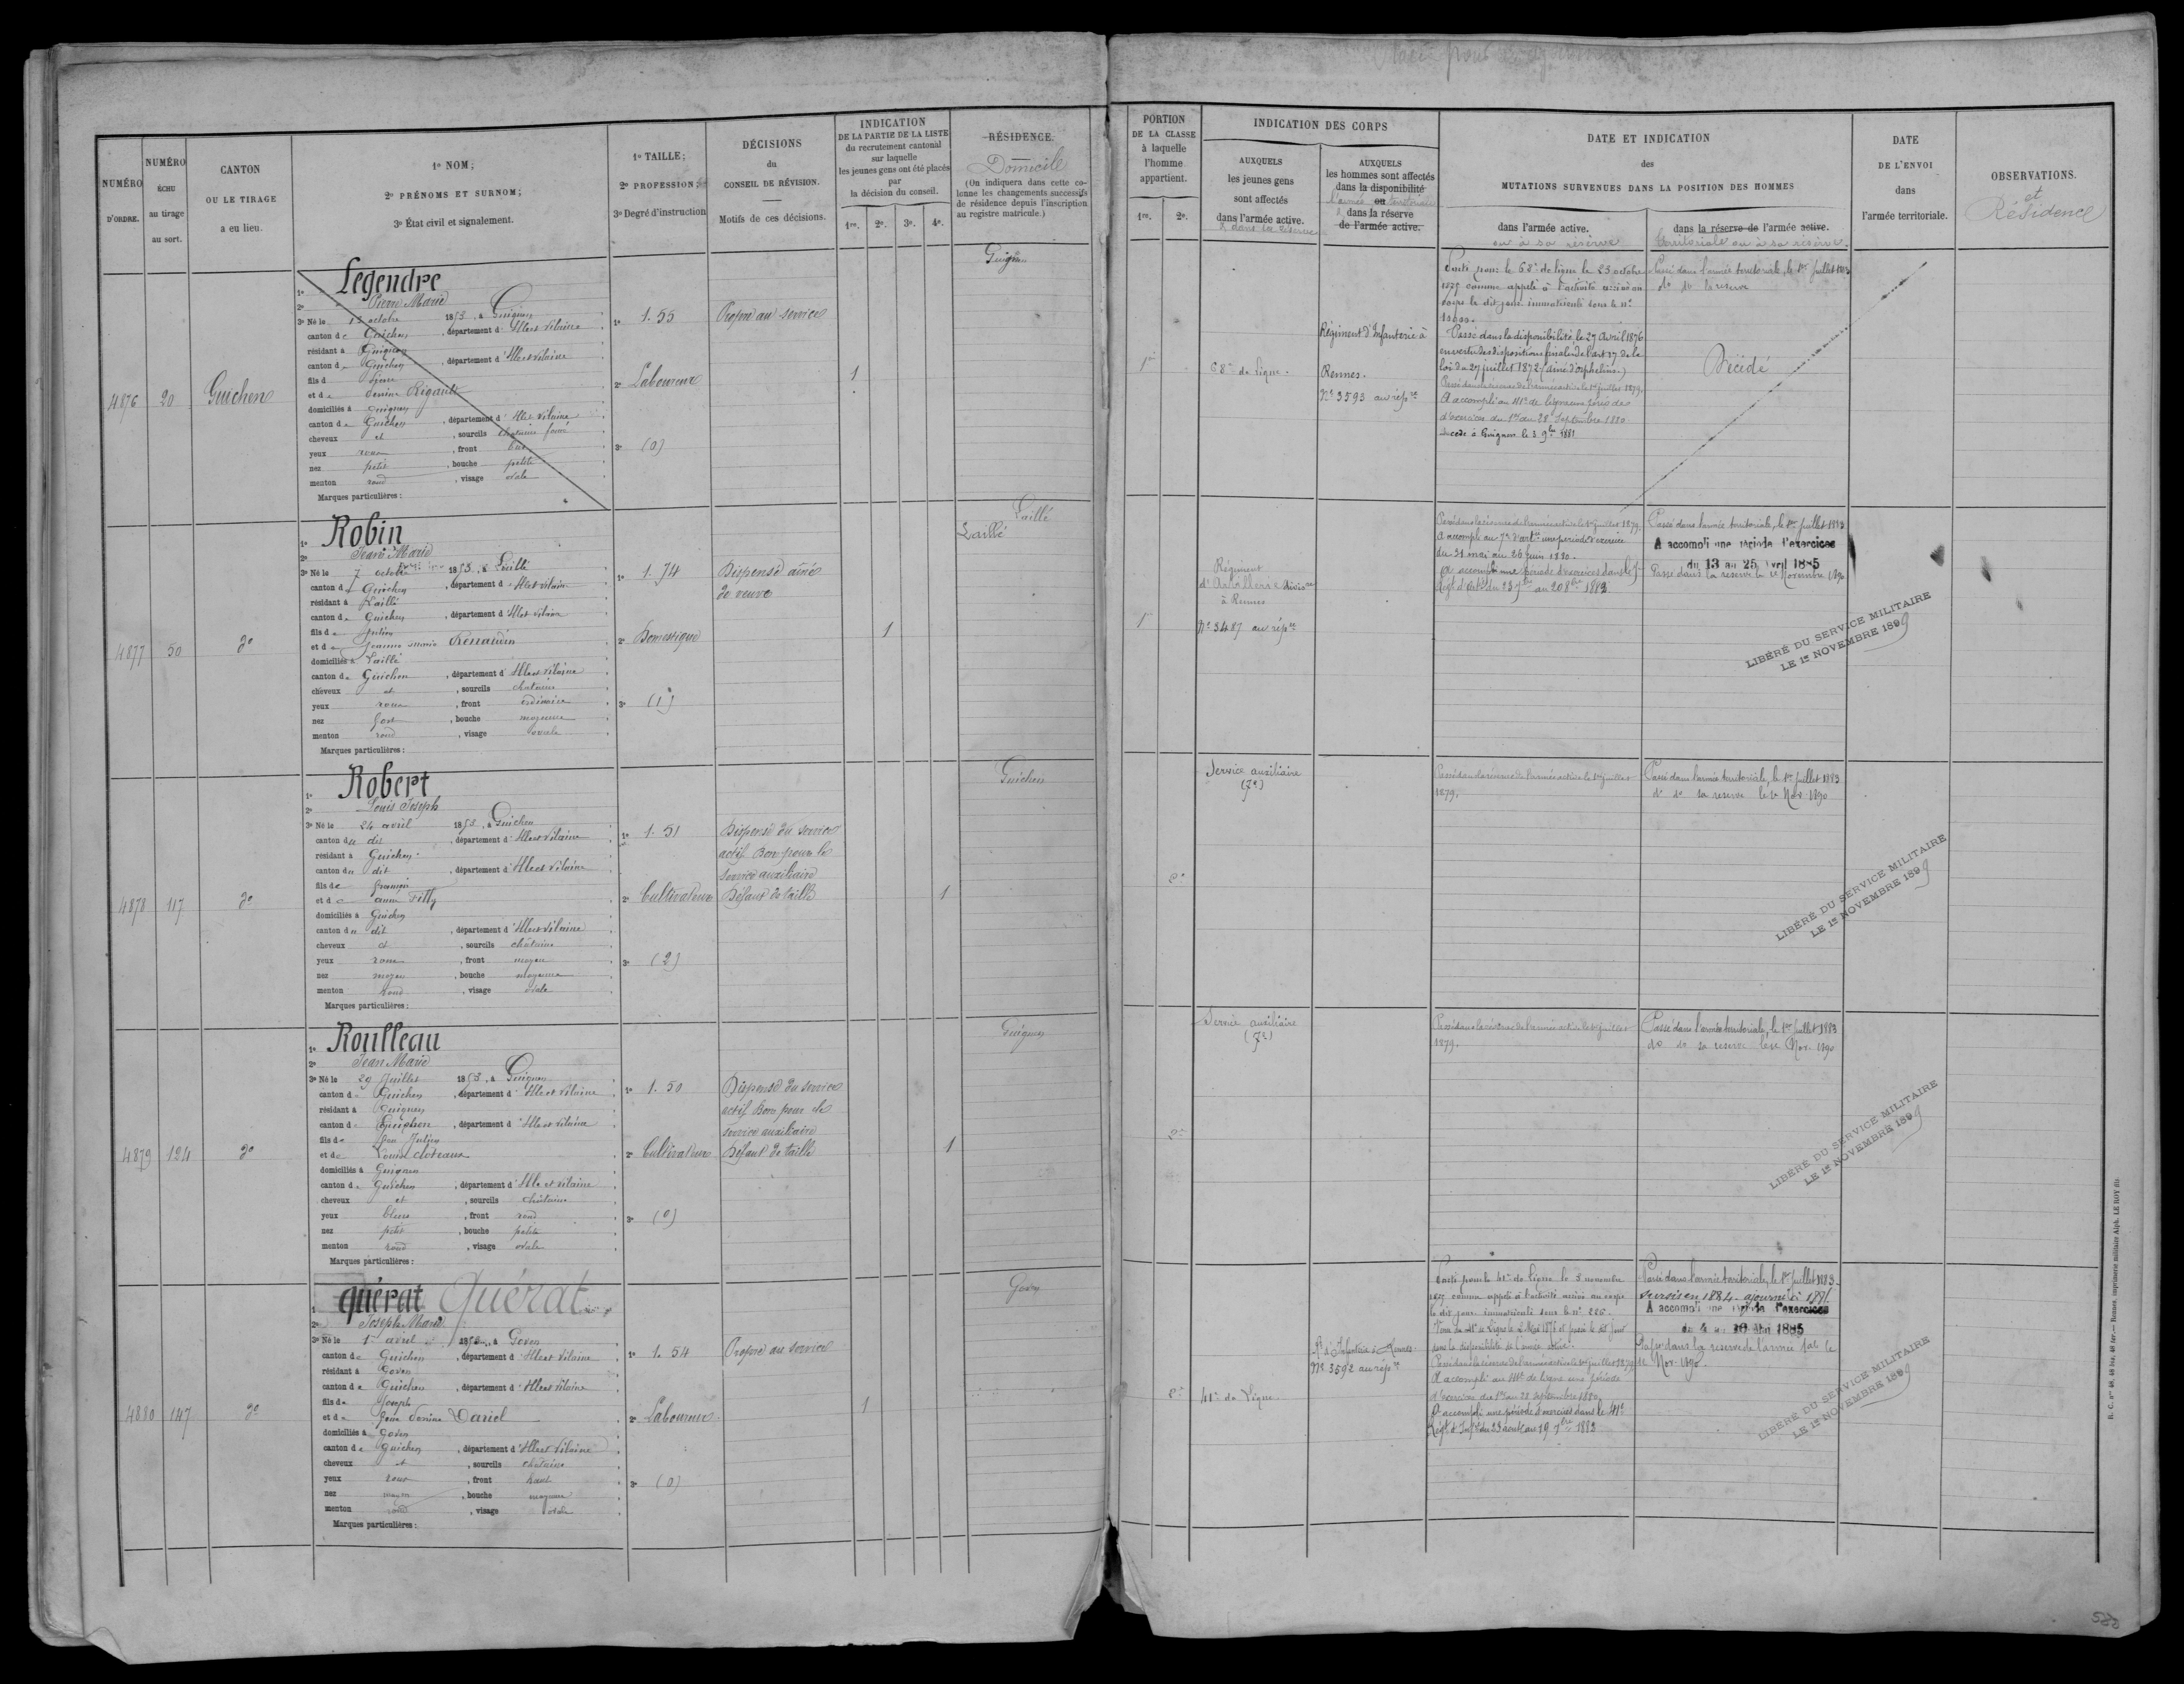 NUMÉRO
D'ORDRE.
NUMÉRO
ÉCHU
au tirage
au sort.
CANTON
OU LE TIRAGE
a eu lieu.
1º NOM;
2º PRÉNOMS ET SURNOM;
3º État civil et signalement.
1º TAILLE;
2º PROFESSION;
3º Degré d'instruction
DÉCISIONS
du
CONSEIL DE RÉVISION.
Motifs de ces décisions.
INDICATION
DE LA PARTIE DE LA LISTE
du recrutement cantonal
sur laquelle
les jeunes gens ont été placés
par
la décision du conseil.
1re. 2e. 3e. 4e.
RÉSIDENCE
Domicile
(On indiquera dans cette co-
lonne les changements successifs
de résidence depuis l'inscription
au registre matricule.)
PORTION
DE LA CLASSE
à laquelle
l'homme
appartient.
1re. 2e.
INDICATION DES CORPS
AUXQUELS
les jeunes gens
sont affectés
dans l'armée active.
& dans la réserve
AUXQUELS
les hommes sont affectés
dans la disponibilité
ou
dans la réserve
de l'armée active.
DATE ET INDICATION
des
MUTATIONS SURVENUES DANS LA POSITION DES HOMMES
dans l'armée active.
ou à sa réserve
dans la réserve de l'armée active.
territoriale ou à sa réserve.
DATE
DE L'ENVOI
dans
l'armée territoriale.
OBSERVATIONS.
et
Résidence
4876 20 Guichen
1º Legendre
2º Pierre Marie
3º Né le 13 octobre 1853, à Guignen
canton de Guichen, département d'Ille et Vilaine
résidant à Guignen
canton de Guichen, département d'Ille et Vilaine
fils de Pierre
et de Rigault
domiciliés à Guignen
canton de Guichen, département d'Ille et Vilaine
cheveux et, sourcils châtains foncé
yeux roux, front bas
nez petit, bouche petite
menton rond, visage ovale
Marques particulières :
1º 1.55
2º Laboureur
3º (0)
Propre au service
1
Guignen
1re
68e de ligne.
Régiment d'Infanterie à
Rennes.
Nº 3593 au rép.re
Parti pour le 68e de ligne le 23 octobre
1875 comme appelé à l'activité arrivé au
corps le dit jour immatriculé sous le nº
Passé dans la disponibilité le 27 avril 1876
en vertu des dispositions finales de l'art 17 de la
loi du 27 juillet 1872 (aîné d'orphelins.)
Passé dans la réserve de l'armée active le 1er juillet 1879.
A accompli au 41e de ligne une période
d'exercices du 1er au 28 Septembre 1880
décédé à Guignen le 3 9bre 1881
Passé dans l'armée territoriale, le 1er juillet 1883
dº dº la réserve
Décédé
4877 50 dº
1º Robin
2º Jean Marie
3º Né le 7 octobre 1853, à Laillé
canton de Guichen, département d'Ille et Vilaine
résidant à Laillé
canton de Guichen, département d'Ille et Vilaine
fils de Julien
et de Jeanne Marie Renaudin
domiciliés à Laillé
canton de Guichen, département d'Ille et Vilaine
cheveux et, sourcils châtains
yeux roux, front ordinaire
nez fort, bouche moyenne
menton rond, visage ovale
Marques particulières :
1º 1.74
2º Domestique
3º (1)
Dispensé aîné
de veuve
1
Laillé
Laillé
1re
Régiment
d'Artillerie
à Rennes
Nº 3487 au rép.re
Passé dans la réserve de l'armée active le 1er juillet 1879.
A accompli au 7e d'art.ie une période d'exercice
du 31 mai au 26 juin 1880.
A accompli une période d'exercices dans le
Passé dans l'armée territoriale, le 1er juillet 1883
A accompli une période d'exercices
du 13 au 25 Avril 1885
Passé dans la réserve le 1er Novembre 1890
LIBÉRÉ DU SERVICE MILITAIRE
LE 1er NOVEMBRE 1899
4878 117 dº
1º Robert
2º Louis Joseph
3º Né le 24 avril 1853, à Guichen
canton du dit, département d'Ille et Vilaine
résidant à Guichen
canton du dit, département d'Ille et Vilaine
fils de
et de Anne Filly
domiciliés à Guichen
canton du dit, département d'Ille et Vilaine
cheveux et, sourcils châtains
yeux roux, front moyen
nez moyen, bouche moyenne
menton rond, visage ovale
Marques particulières :
1º 1.51
2º Cultivateur
3º (2)
Dispensé du service
actif Bon pour le
service auxiliaire
Défaut de taille
1
Guichen
2e
Service auxiliaire
(7e)
Passé dans la réserve de l'armée active le 1er juillet
1879.
Passé dans l'armée territoriale, le 1er juillet 1883
dº dº sa réserve le 1er Nov. 1890
LIBÉRÉ DU SERVICE MILITAIRE
LE 1er NOVEMBRE 1899
4879 124 dº
1º Roulleau
2º Jean Marie
3º Né le 29 Juillet 1853, à Guignen
canton de Guichen, département d'Ille et Vilaine
résidant à Guignen
canton de Guichen, département d'Ille et Vilaine
fils de Julien
et de Louise Loteaux
domiciliés à Guignen
canton de Guichen, département d'Ille et Vilaine
cheveux et, sourcils châtains
yeux bleus, front rond
nez petit, bouche petite
menton rond, visage ovale
Marques particulières :
1º 1.50
2º Cultivateur
3º (0)
Dispensé du service
actif Bon pour le
service auxiliaire
Défaut de taille
1
Guignen
2e
Service auxiliaire
(7e)
Passé dans la réserve de l'armée active le 1er juillet
1879.
Passé dans l'armée territoriale, le 1er juillet 1883
dº dº sa réserve le 1er Nov. 1890
LIBÉRÉ DU SERVICE MILITAIRE
LE 1er NOVEMBRE 1899
4880 147 dº
1º quérat Quérat
2º Joseph Marie
3º Né le 1er avril 1853, à Goven
canton de Guichen, département d'Ille et Vilaine
résidant à Goven
canton de Guichen, département d'Ille et Vilaine
fils de Joseph
et de Dariel
domiciliés à Goven
canton de Guichen, département d'Ille et Vilaine
cheveux et, sourcils châtains
yeux roux, front haut
nez moyen, bouche moyenne
menton rond, visage ovale
Marques particulières :
1º 1.54
2º Laboureur
3º (0)
Propre au service
1
Goven
2e
41e de Ligne
Rt d'Infanterie à Rennes
Nº 3592 au rép.re
Parti pour le 41e de ligne le 3 novembre
1875 comme appelé à l'activité arrivé au corps
le dit jour immatriculé sous le nº
Passé dans la réserve de l'armée active le 1er juillet 1879
A accompli au 41e de ligne une période
d'exercices du 1er au 28 septembre 1880
A accompli une période d'exercices dans le 41e
Régt d'Inf.ie du 23 août au 19 7bre 1883
Passé dans l'armée territoriale, le 1er juillet 1883
sursis en 1884 ajourné à 1885.
A accompli une période d'exercices
du 4 au 16 Mai 1885
Passé dans la réserve de l'armée t.ale le
1er Nov. 1890.
LIBÉRÉ DU SERVICE MILITAIRE
LE 1er NOVEMBRE 1899
R. C. nos 48, 48 bis, 48 ter.— Rennes, imprimerie militaire Alph. LE ROY fils.